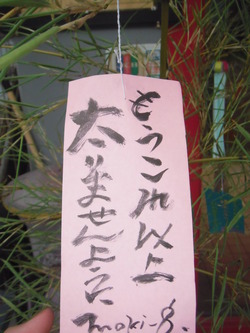 もうこれ以上
太りませんように